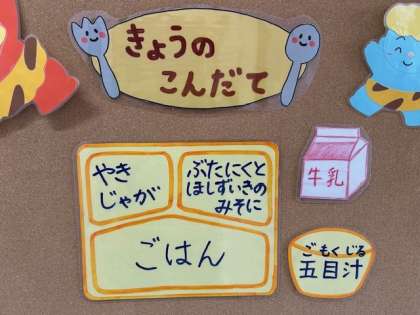 きょうの
こんだて
やき
じゃが
ぶたにくと
ほしずいきの
みそに
牛乳
ごはん
ごもくじる
五目汁